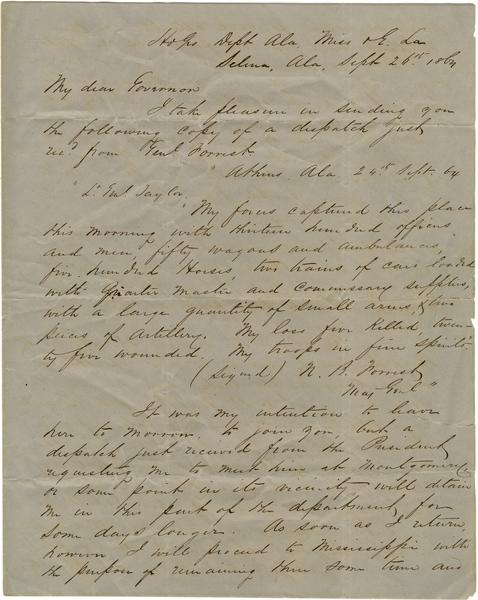 Hd Qrs Dept Ala, Miss & E. La
Selma, Ala, Sept 26th 1864
My dear Governor
I take pleasure in sending you
the following copy of a dispatch just
recd from Genl Forrest.
"Athens Ala 24th Sept. 64
"Lt Genl Taylor,
"My forces captured this place
this morning with thirteen hundred officers
and men, fifty wagons and ambulances,
five hundred Horses, two trains of cars loaded
with Quarter Master and Commissary supplies,
with a large quantity of small arms, & two
pieces of Artillery. My loss five killed, twen-
ty five wounded. My troops in fine spirits.
(Signed) N. B. Forrest
Maj Genl"
It was my intention to leave
here to morrow, to join you, but a
dispatch just received from the President
requesting me to meet him at Montgomery,
or some point in its vicinity will detain
me in this part of the department for
some days longer. As soon as I return,
however, I will proceed to Mississippi with
the purpose of remaining there some time and